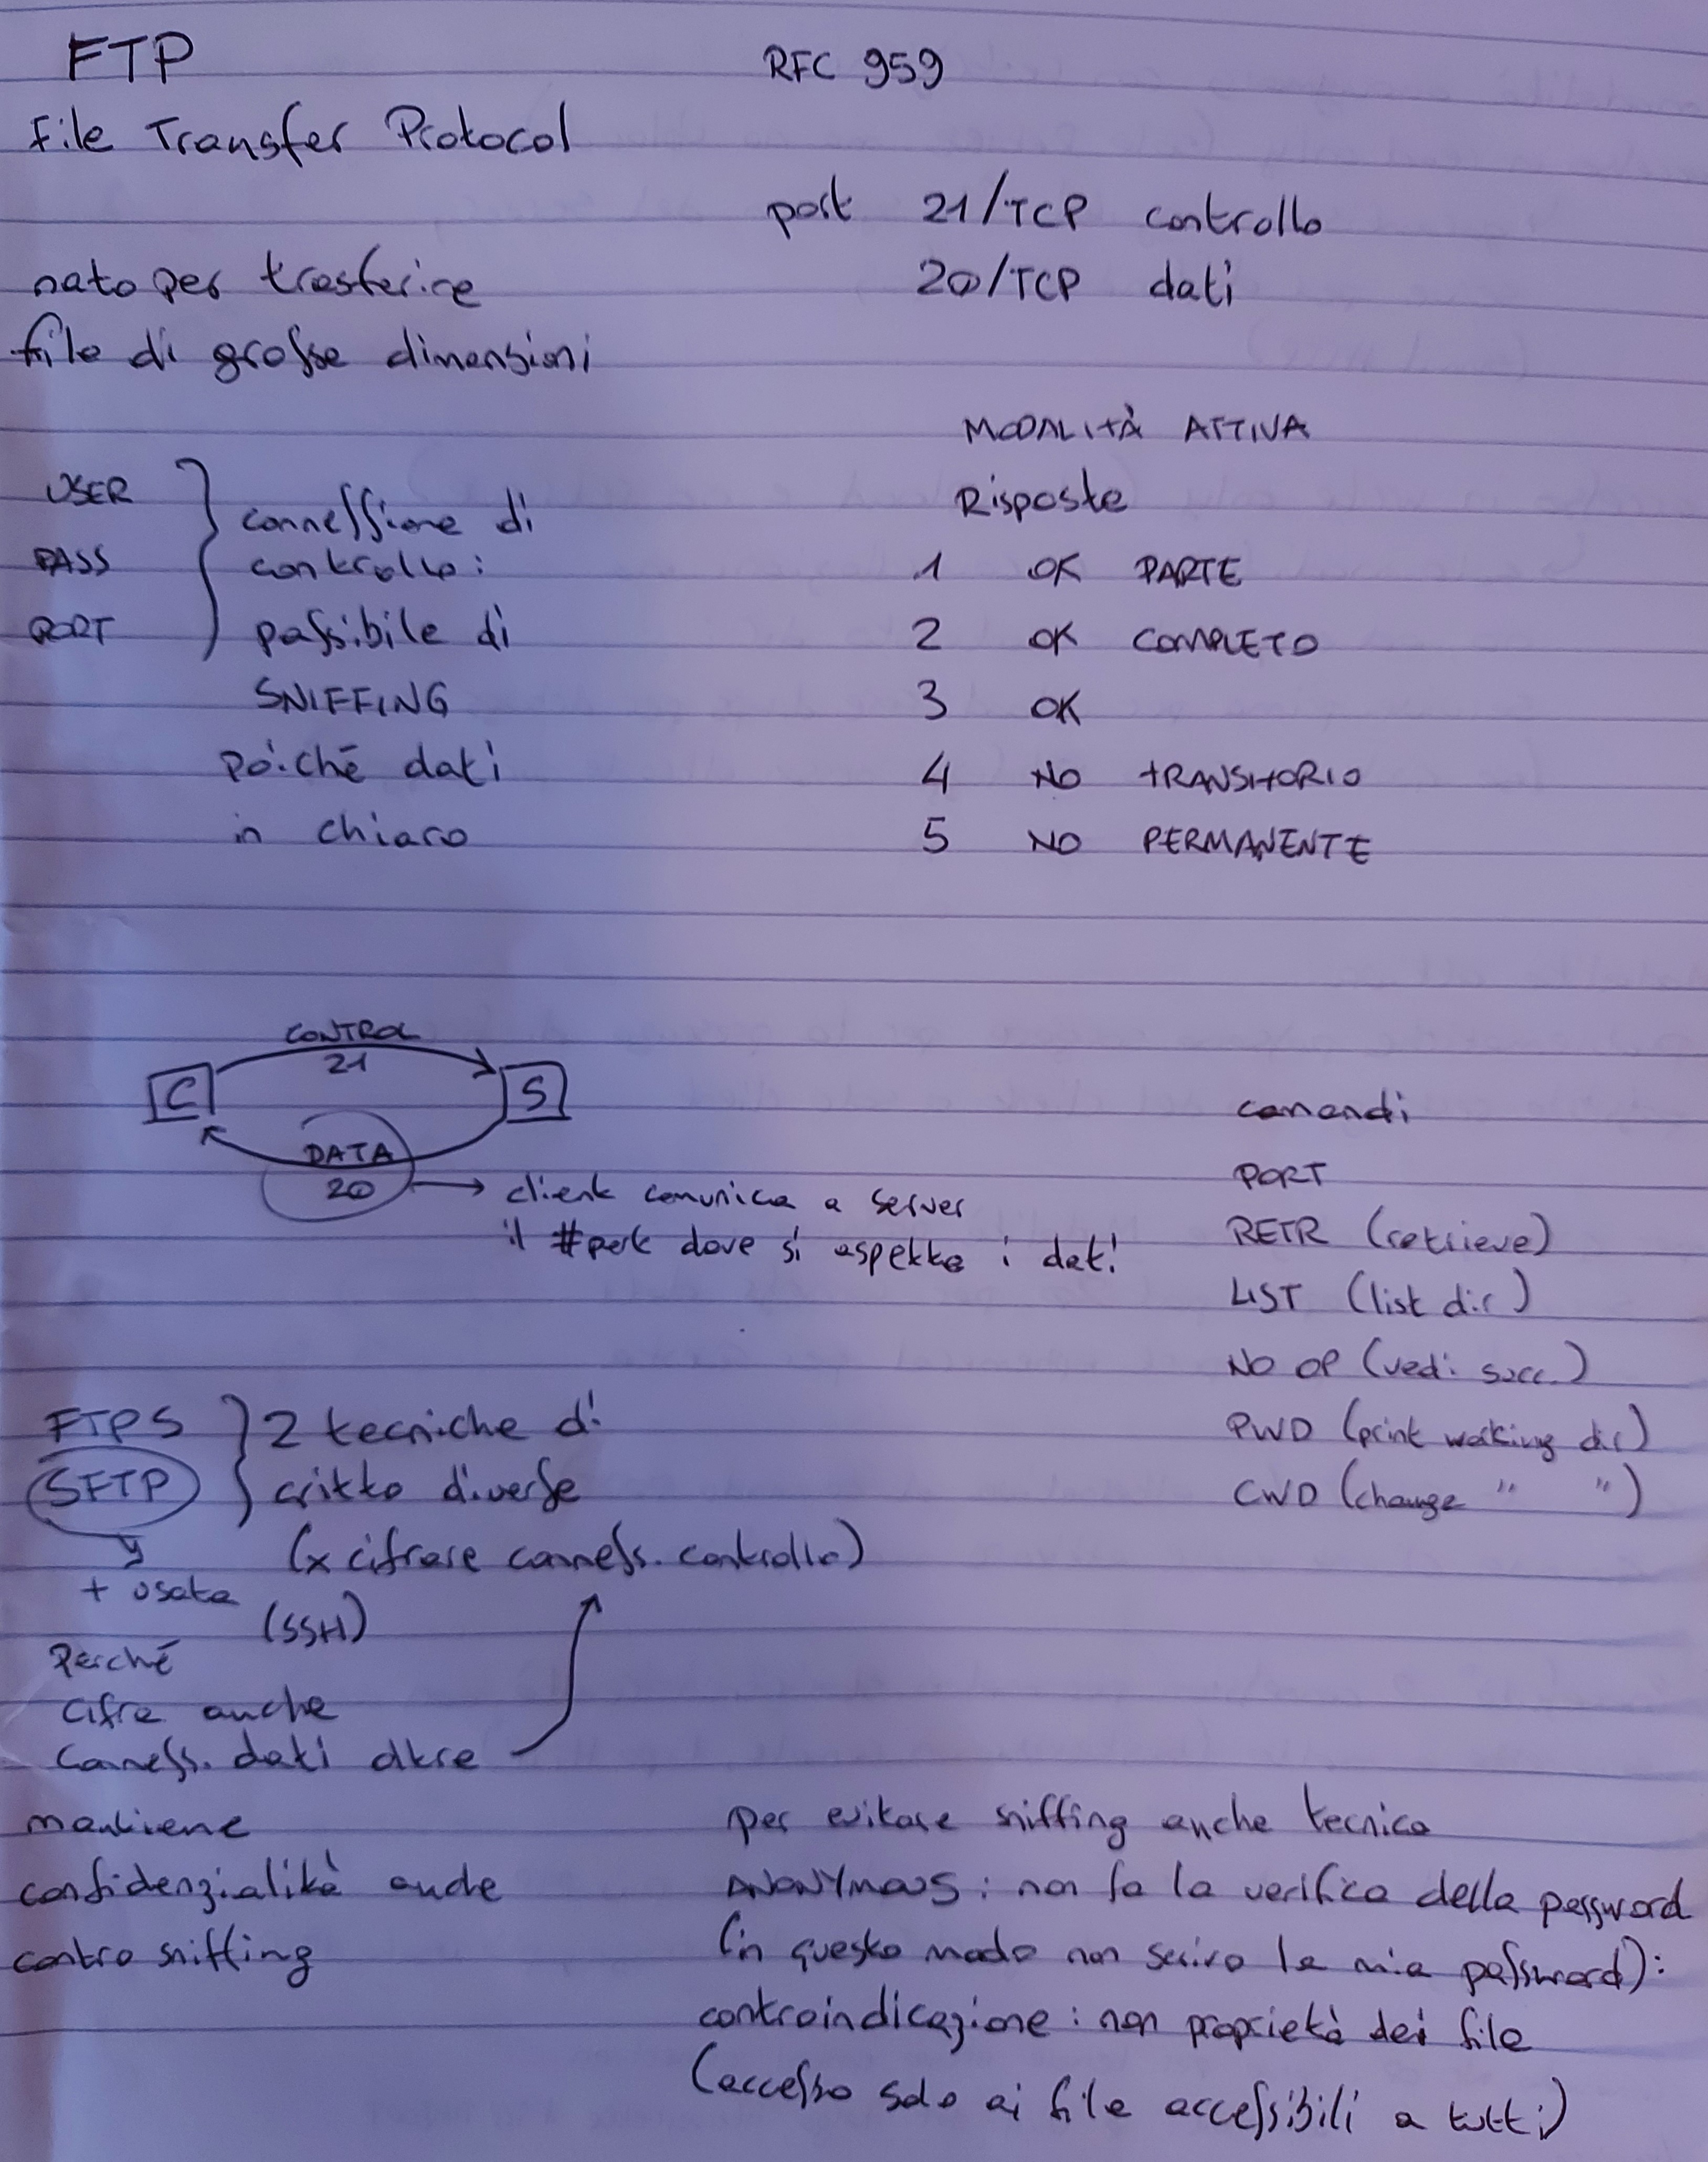 FTP
RFC 959
File Transfer Protocol
port 21/TCP controllo
20/TCP dati
nato per trasferire
file di grosse dimensioni
MODALITÀ ATTIVA
Risposte
1 OK PARTE
2 OK COMPLETO
3 OK
4 NO TRANSITORIO
5 NO PERMANENTE
USER
PASS
PORT
connessione di
controllo:
passibile di
SNIFFING
poiché dati
in chiaro
CONTROL
21
C
S
DATA
20
client comunica a server
il #port dove si aspetta i dati
comandi
PORT
RETR (retrieve)
LIST (list dir)
NO OP (vedi succ.)
PWD (print working dir)
CWD (change " ")
FTPS
SFTP
2 tecniche di
critto diverse
(x cifrare conness. controllo)
+ usata
(SSH)
perché
cifra anche
conness. dati oltre
mantiene
confidenzialità anche
contro sniffing
per evitare sniffing anche tecnica
ANONYMOUS: non fa la verifica della password
(in questo modo non scrivo la mia password):
controindicazione: non proprietà dei file
(accesso solo ai file accessibili a tutti)